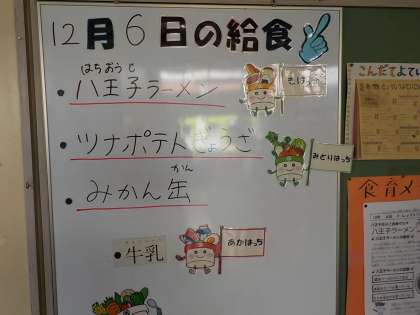 12月6日の給食
はちおうじ
・八王子ラーメン
・ツナポテトぎょうざ
みどりはっち
かん
・みかん缶
・牛乳
あかはっち
こんだてよてい
食育メ
八王子ラーメン